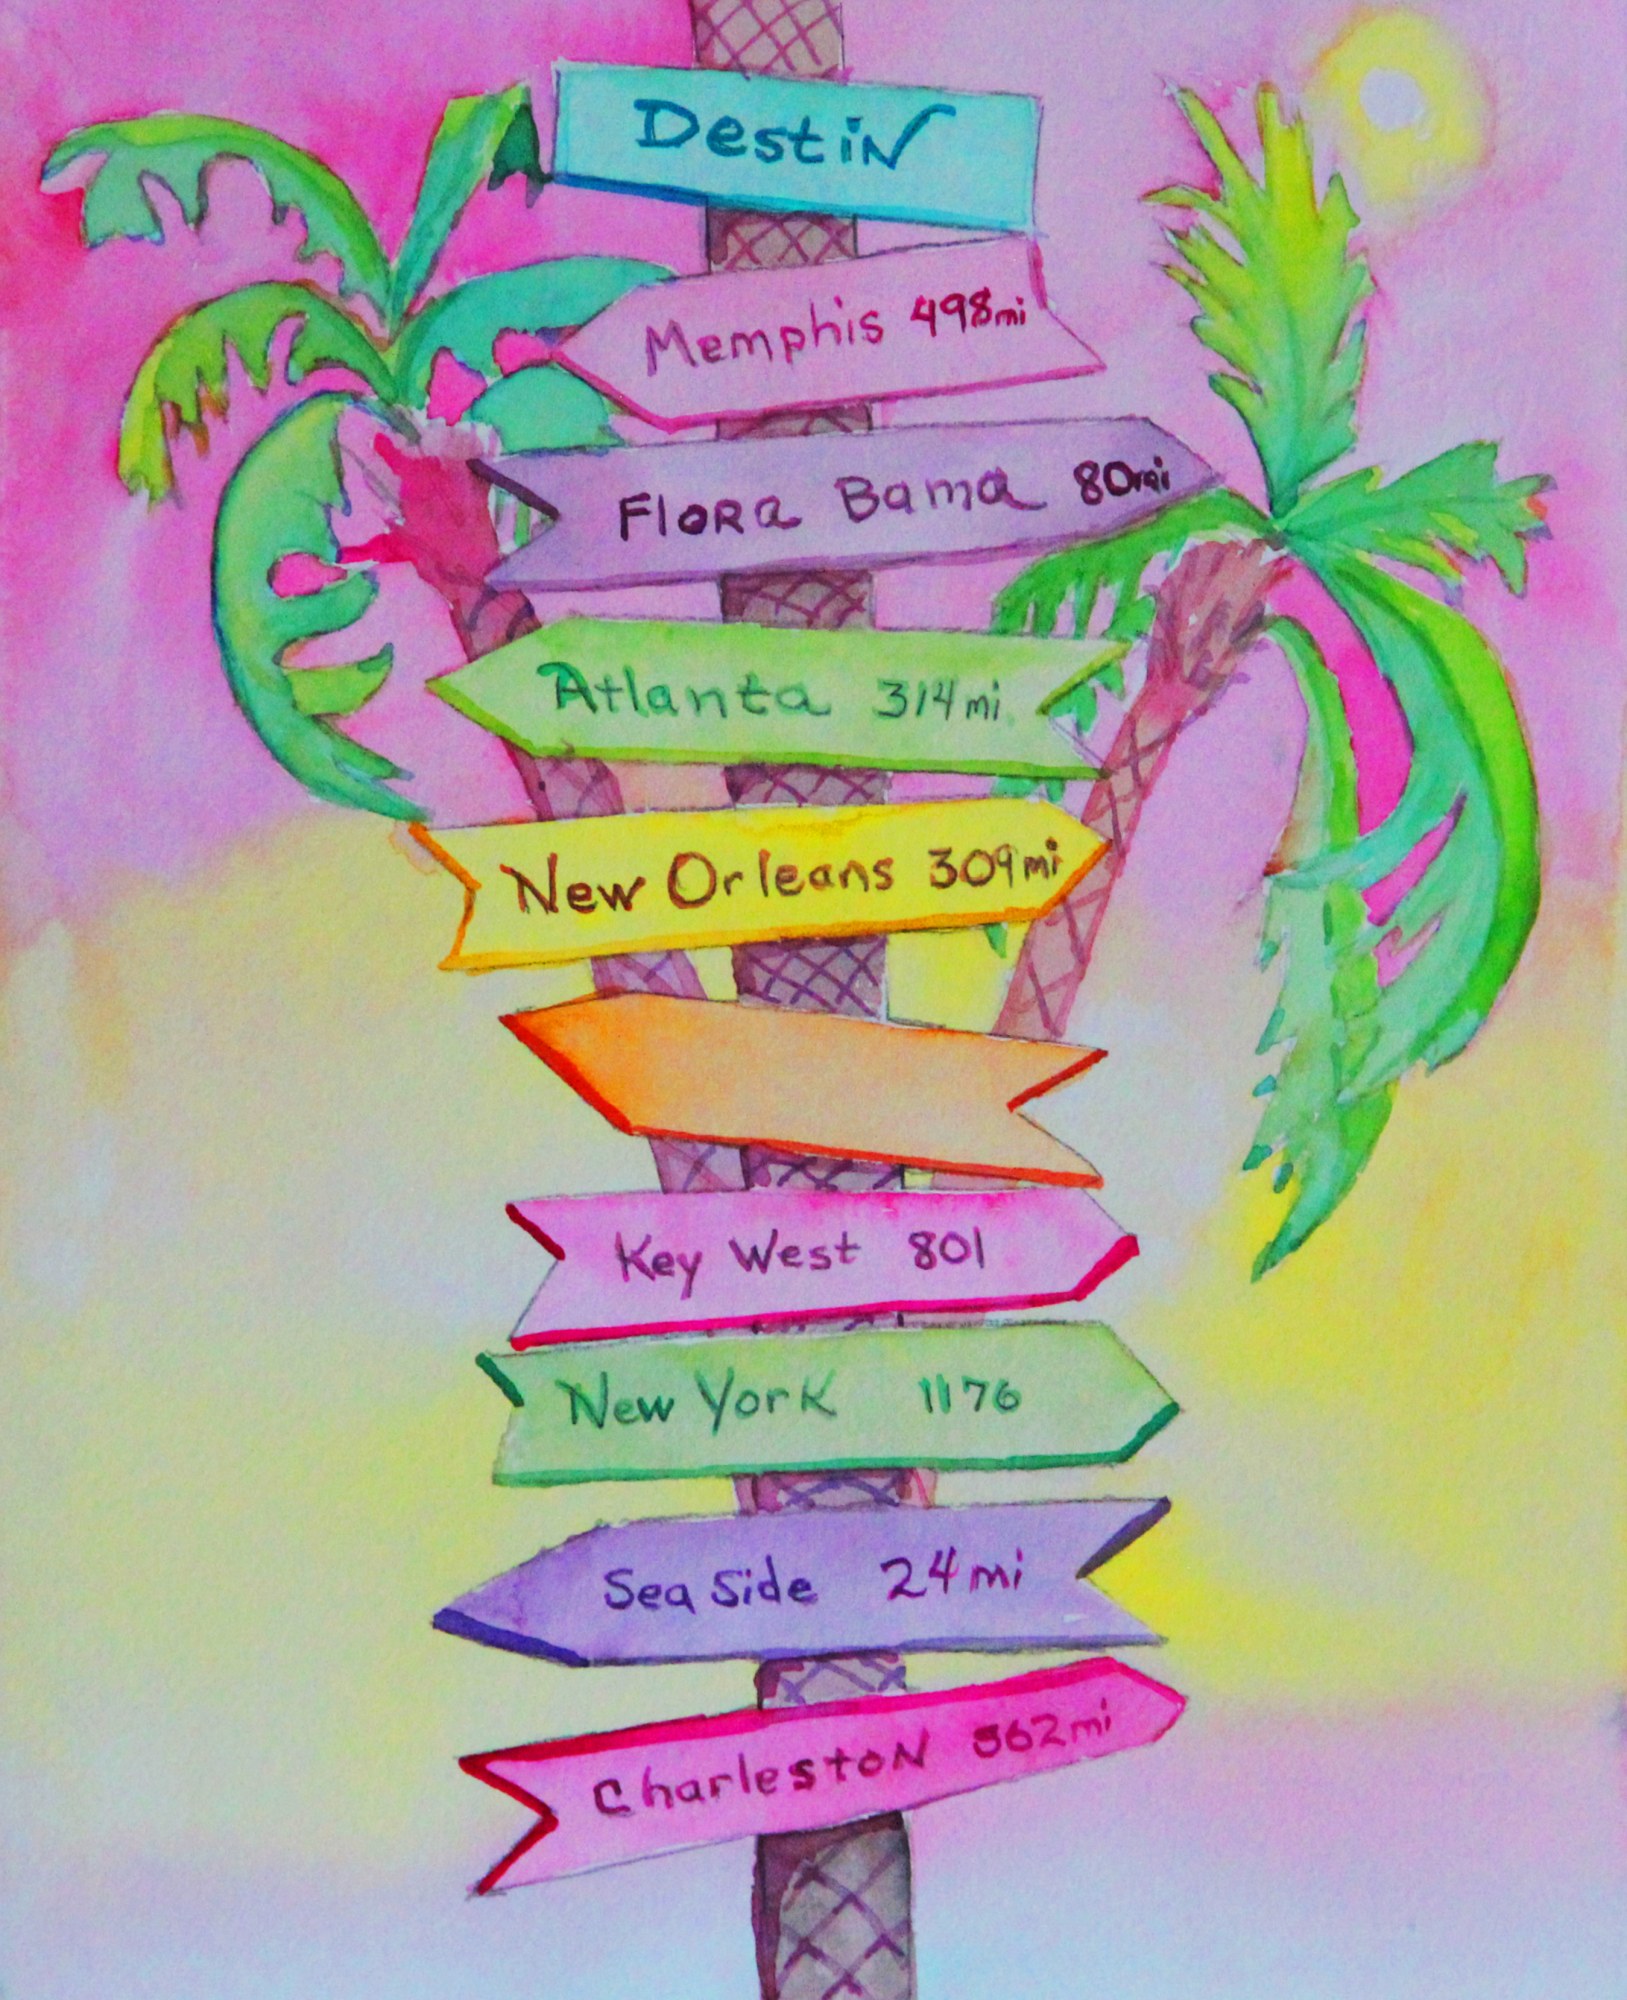 Destin
Memphis 498mi
Flora Bama 80mi
Atlanta 314mi
New Orleans 309mi
Key West 801
New York 1176
Sea Side 24mi
Charleston 562mi